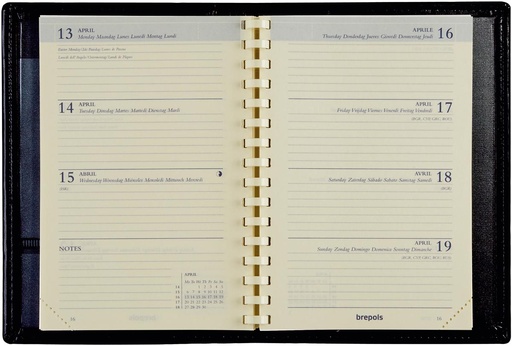 13 APRIL
Monday Maandag Lunes Lunedì Montag Lundi
14 APRIL
Tuesday Dinsdag Martes Martedì Dienstag Mardi
15 ABRIL
Wednesday Woensdag Miércoles Mercoledì Mittwoch Mercredi
NOTES
APRIL
16
APRILE 16
Thursday Donderdag Jueves Giovedì Donnerstag Jeudi
APRIL 17
Friday Vrijdag Viernes Venerdì Freitag Vendredi
AVRIL 18
Saturday Zaterdag Sábado Sabato Samstag Samedi
APRIL 19
Sunday Zondag Domingo Domenica Sonntag Dimanche
brepols
16